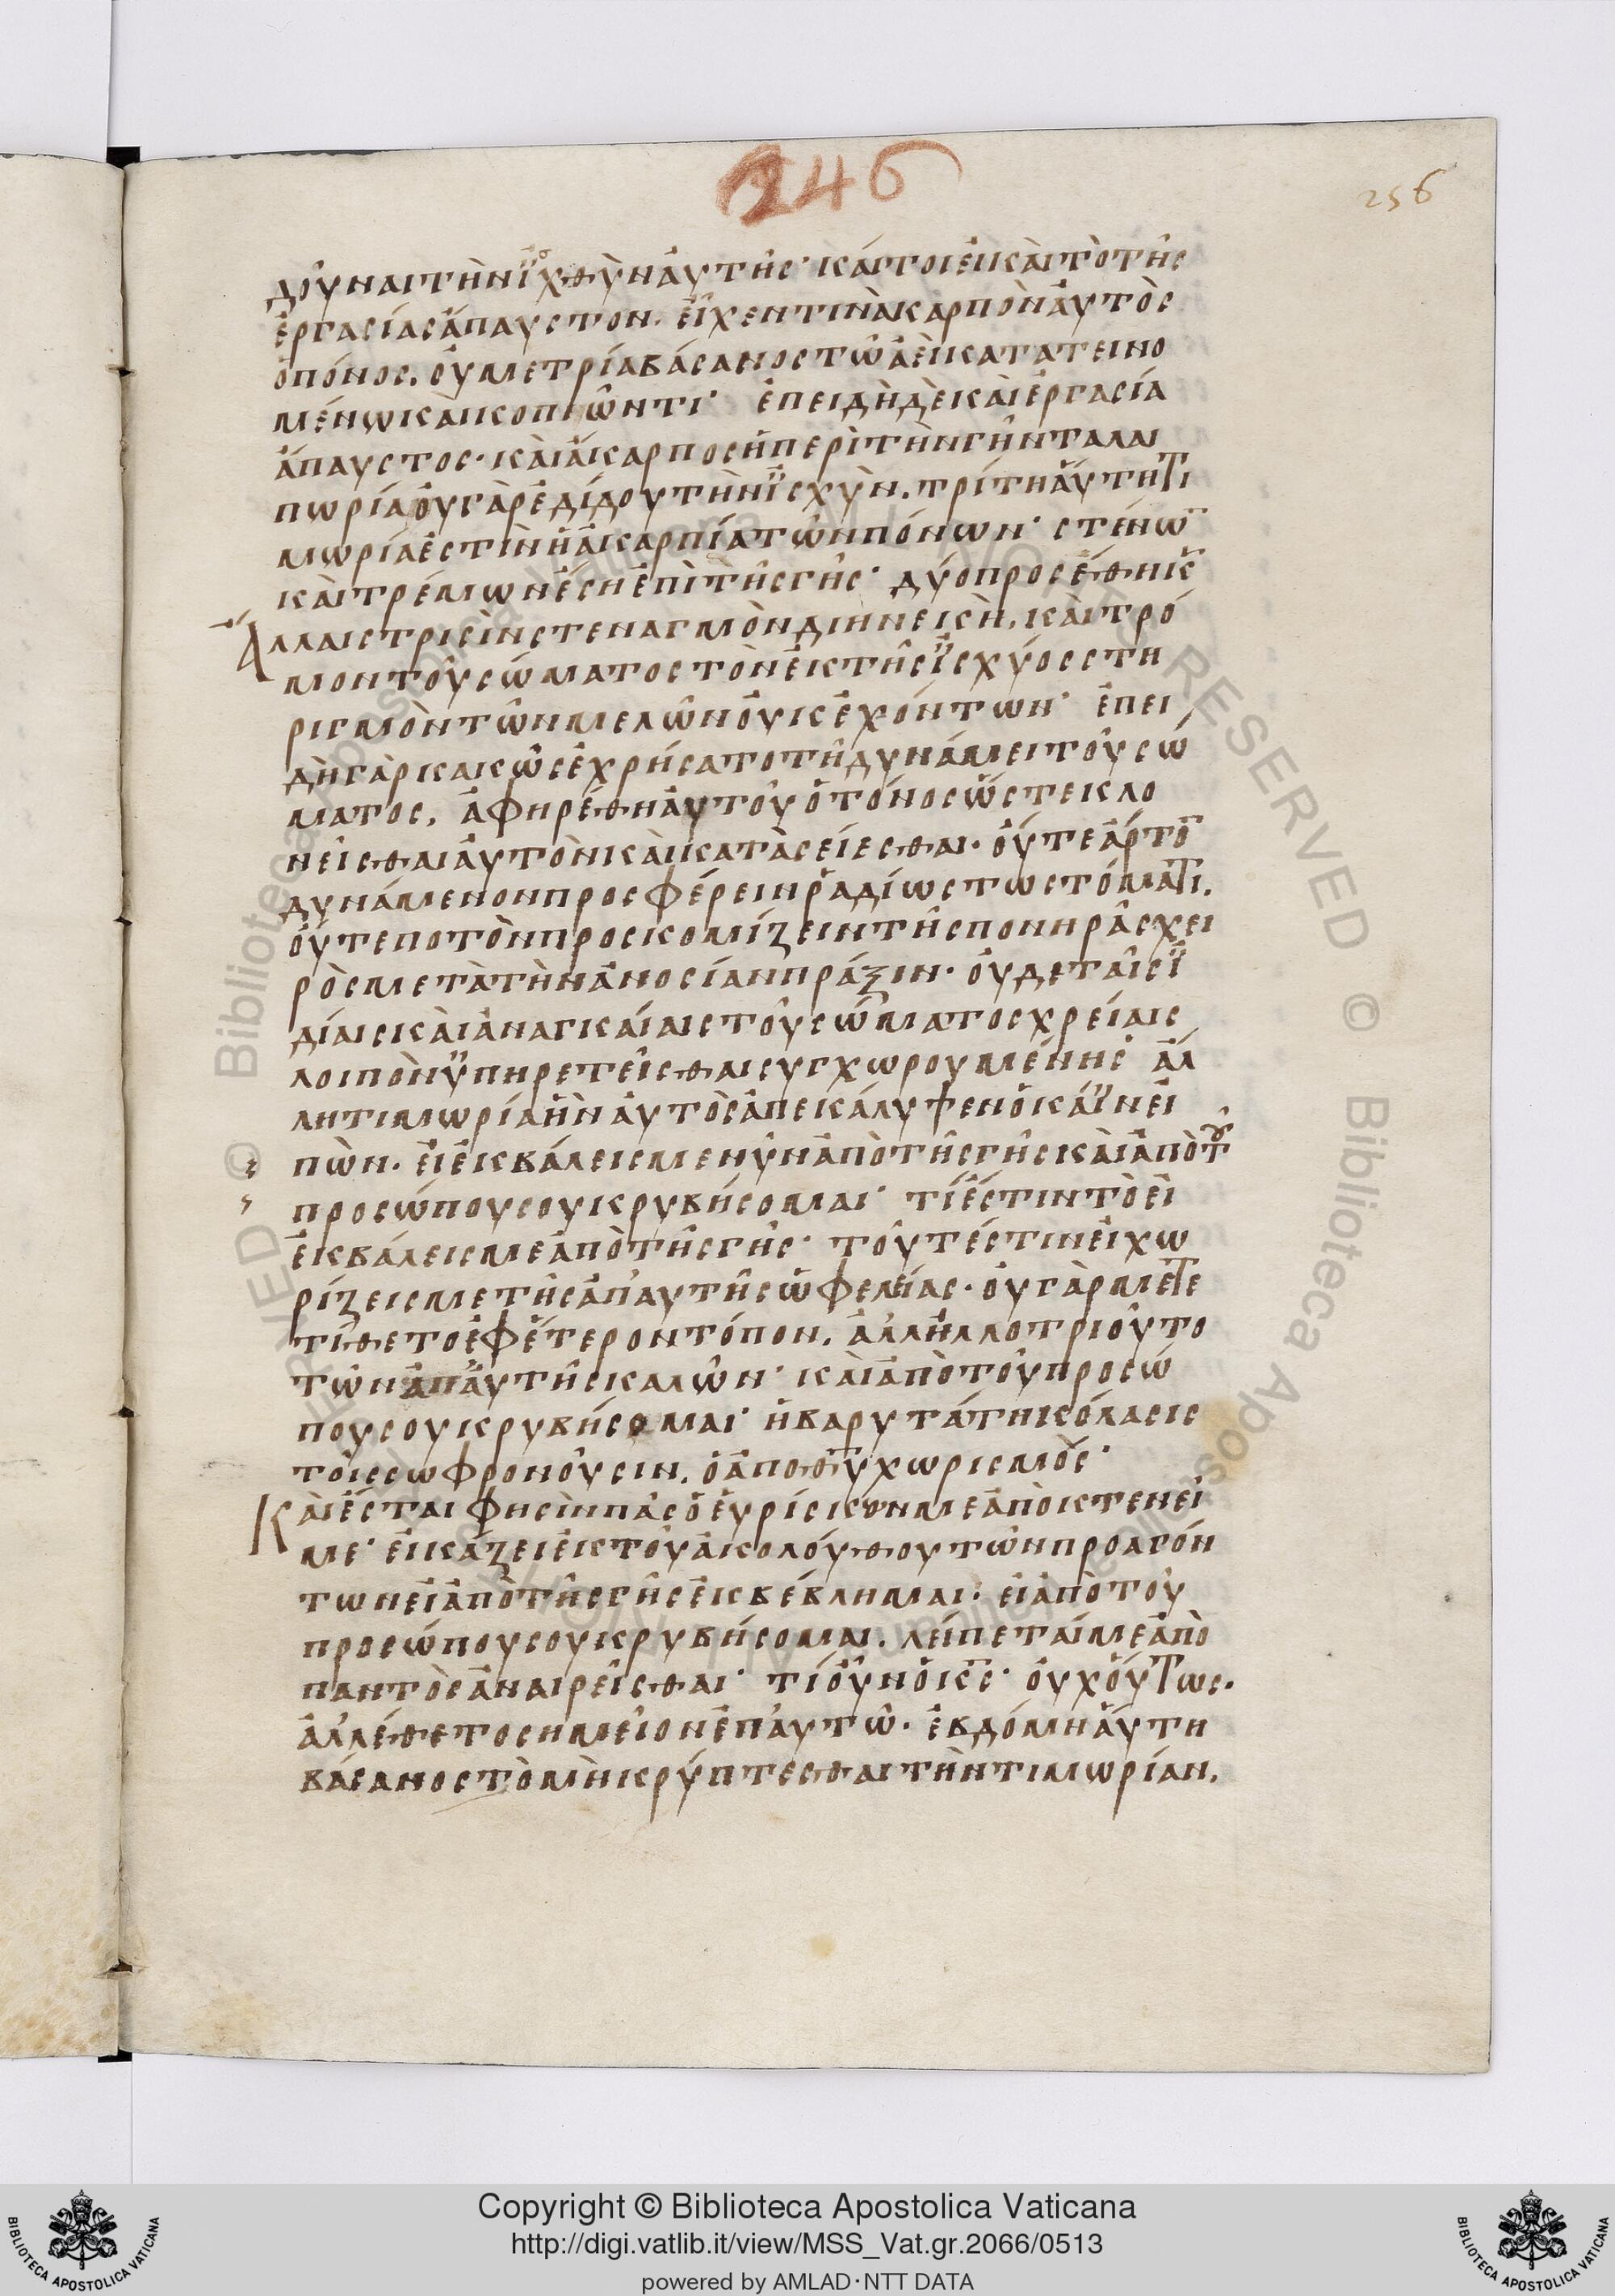 246
256
δοῦναι τὴν ἰχθὺν αὐτῆς· καίτοι εἰ καὶ τὸ τῆς
ἐργασίας ἄπαυστον. εἶχεν τινὰ καρπὸν αὐτὸς
ὁ πόνος. οὐ μετρία βάσανος τῶ ἀεὶ κατατεινο
μένωι καὶ κοπιῶντι· ἐπειδὴ δὲ καὶ ἐργασία
ἄπαυστος· καὶ ἄκαρπος ἡ περὶ τὴν γῆν ταλαι
πωρία οὐ γὰρ ἐδίδου τὴν ἰσχὺν. τρίτη αὕτη τι
μωρία ἐστὶν ἡ ἀκαρπία τῶν πόνων· στένω̅
καὶ τρέμων ἔση ἐπὶ τῆς γῆς· δύο προσέθηκ̅
ἄλλαις τρισὶν στεναγμὸν διηνεκῆ. καὶ τρό
μον τοῦ σώματος τὸν ἐκ τῆς ἰσχύος στη
ριγμὸν τῶν μελῶν οὐκ ἐχόντων· ἐπει
δὴ γὰρ κακῶς ἐχρήσατο τῆ δυνάμει τοῦ σώ
ματος, ἀφηρέθη αὐτοῦ ὁ τόνος ὥστε κλο
νεῖσθαι αὐτὸν καὶ κατὰσείεσθαι. οὔτε ἄρτο̅
δυνάμενον προσφέρειν ῥαδίως τω στόματι.
οὔτε ποτὸν προσκομίζειν τῆς πονηρᾶς χει
ρὸς μετὰ τὴν ἀνοσίαν πρᾶξιν· οὐδε ταῖς ἰ
δίαις καὶ ἀναγκαίαις τοῦ σώματος χρείαις
λοιπὸν ὑπηρετεῖσθαι συγχωρουμένης ἄλ
λη τιμωρία ἣν αὐτὸς ἀπεκάλυψεν ὁ κάϊν εἰ
πὼν. εἰ ἐκβάλεις με νῦν ἀπὸ τῆς γῆς καὶ ἀπὸ τοῦ
προσώπου σου κρυβήσομαι· τί ἐστιν τὸ εἰ
ἐκβάλεις με ἀπὸ τῆς γῆς· τοῦτέστιν εἰ χω
ρίζεις με τῆς ἀπ' αυτῆς ὠφελείας. οὐ γὰρ μετε
τίθετο ἐφ' ἕτερον τόπον. ἀλλ' ἠλλοτριοῦτο
τῶν ἀπ' αὐτῆς καλῶν· καὶ ἀπὸ τοῦ προσώ
που σου κρυβήσομαι· ἡ βαρυτάτη κόλασις
τοῖς σωφρονοῦσιν. ὁ ἀπο θ̅υ̅ χωρισμός·
Καὶ ἔσται φησὶν πᾶς ὁ εὑρίσκων με ἀπὸκτενεῖ
με· εἰκάζει ἐκ τοῦ ἀκολούθου τῶν προαγόν
των εἰ ἀπὸ τῆς γῆς ἐκβέβλημαι· εἰ ἀπὸ τοῦ
προσώπου σου κρυβήσομαι. λείπεταί με ἀπὸ
παντὸς ἀναιρεῖσθαι· τί οὖν ὁ κ̅ς̅· οὐχ οὕτως.
ἀλλ' ἔθετο σημεῖον ἐπ' αυτῶ. ἑβδόμη αὕτη
βάσανος τὸ μὴ κρύπτεσθαι τὴν τιμωρίαν.
Copyright © Biblioteca Apostolica Vaticana
http://digi.vatlib.it/view/MSS_Vat.gr.2066/0513
powered by AMLAD·NTT DATA